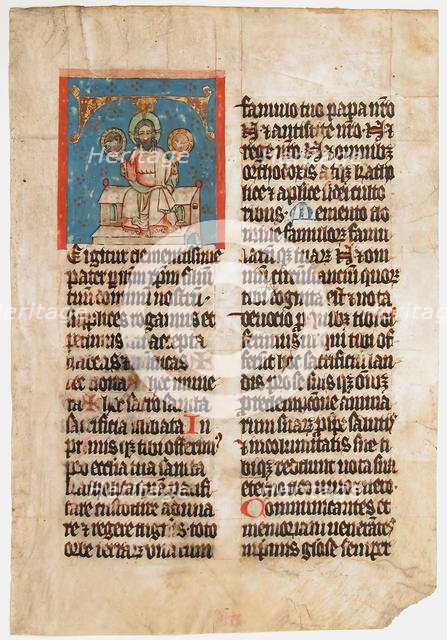 Te igitur clementissime
pater per ihm xpm filium
tuum dominum nostrum
supplices rogamus et
petimus uti accepta
habeas et benedicas
hec dona hec mune
ra hec sancta
sacrificia illibata In
primis que tibi offerim
pro ecclia tua sancta
katholica quam pacifi
care custodire aduna
re et regere digneris toto
orbe terrarum una cum
famulo tuo papa nro
N et antistite nro N et
rege nro N et omnibus
orthodoxis atque katho
lice et aplice fidei culto
ribus Memento do
mine famulor famu
larumque tuar N et om
nium circumstancium quor
tibi cognita est et nota
devocio pro quibus tibi of
ferimus vel qui tibi of
ferunt hoc sacrificium lau
dis pro se suisque omibus
pro redempcione anima
rum suarum pro spe salutis
et incolumitatis sue ti
bique reddunt vota sua
eterno deo vivo et vero
Communicantes et
memoriam venerantes
inprimis gloriose semper
Heritage
Heritage
Heritage
Heritage